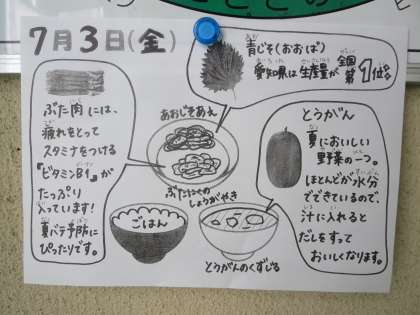 7月3日(金)
ぶた肉には、
疲れをとって
スタミナをつける
「ビタミンB1」が
たっぷり
入っています!
夏バテ予防に
ぴったりです。
青じそ(おおば)
愛知県は生産量が全国第1位
あおじそあえ
ぶたにくの
しょうがやき
ごはん
とうがんのくずじる
とうがん
夏においしい
野菜の一つ。
ほとんどが水分
でできているので、
汁に入れると
だしをすって
おいしくなります。